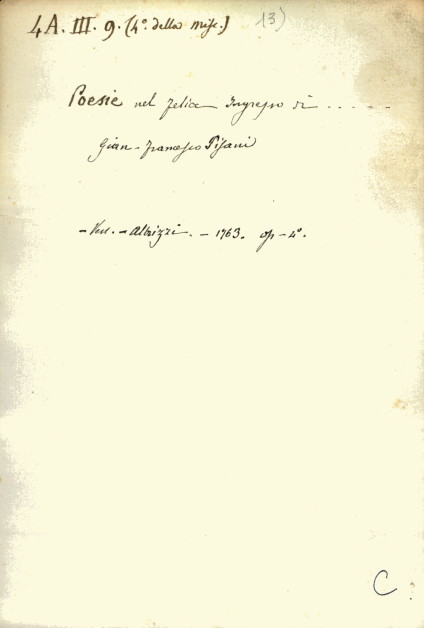 4A. III. 9. (4º. della misc.) 13)
Poesie nel felice Ingresso di ......
Gian-Francesco Pisani
- Ven. - Albrizzi. - 1763. op - 4º.
C